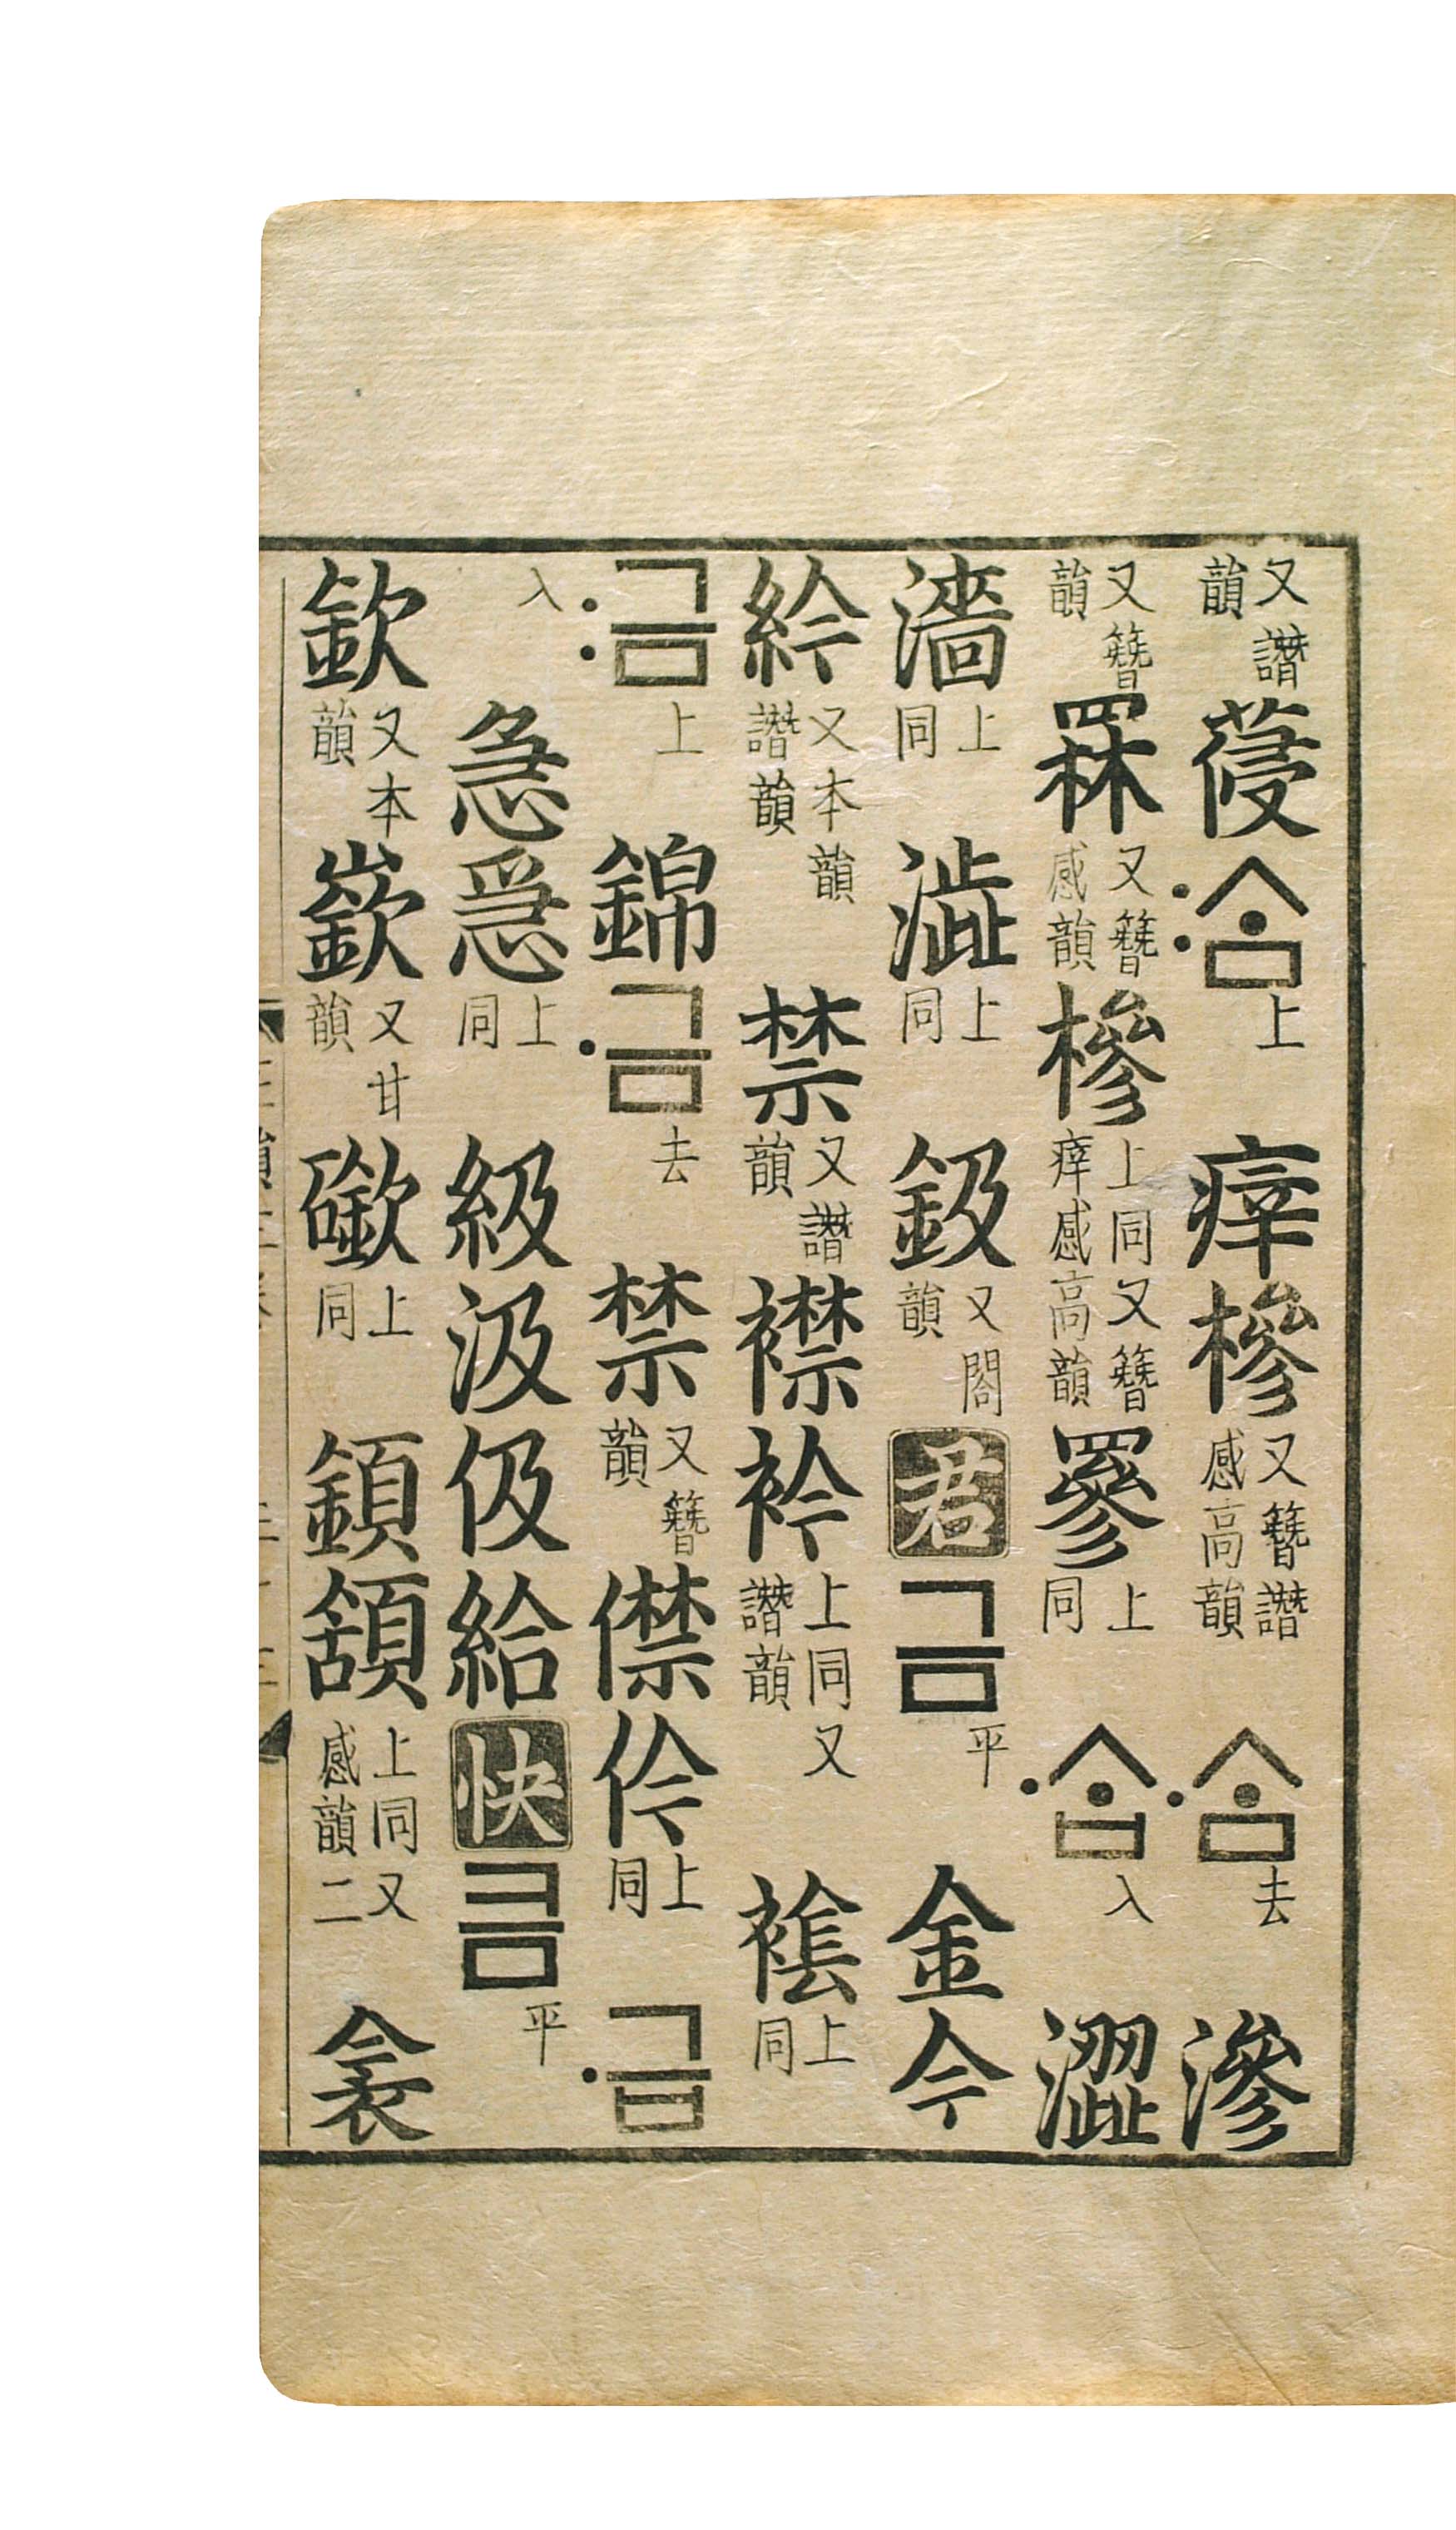 又譖韻葠〯ᄉᆞᆷ上㾕槮又簪譖感高韻〮ᄉᆞᆷ去滲
又簪韻罧又簪感韻槮上同又簪㾕感高韻罧上同〮ᄉᆞᆸ入澀
濇上同澁上同鈒又閤韻君금平金今
紟又本韻譖韻禁又譖韻襟衿上同又譖韻䘳上同
〯금上錦〮금去禁又簪韻僸伶上同〮급
入急㥛上同級汲伋給快큼平
欽又本韻嶔又甘韻礉上同顉頷上同又感韻二衾